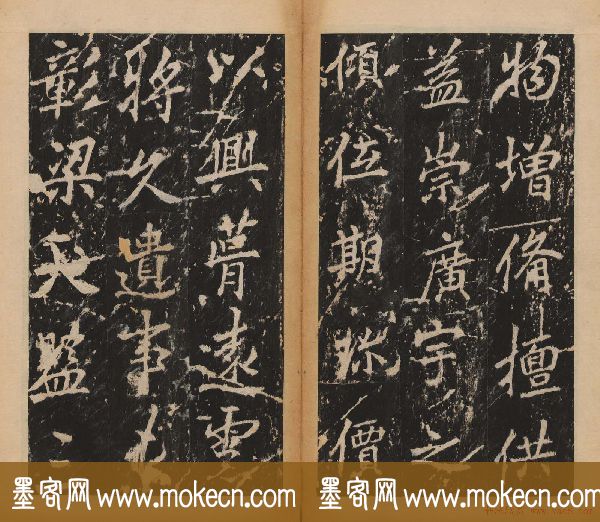 物增備檀供
益崇廣宇之
傾位期珎價
以興葺遠
將久遺事
彰梁天監
墨客网 www.mokecn.com 墨客网 www.mokecn.com